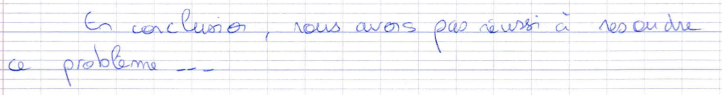 En conclusion, nous avons pas réussi à resoudre
ce problème ---